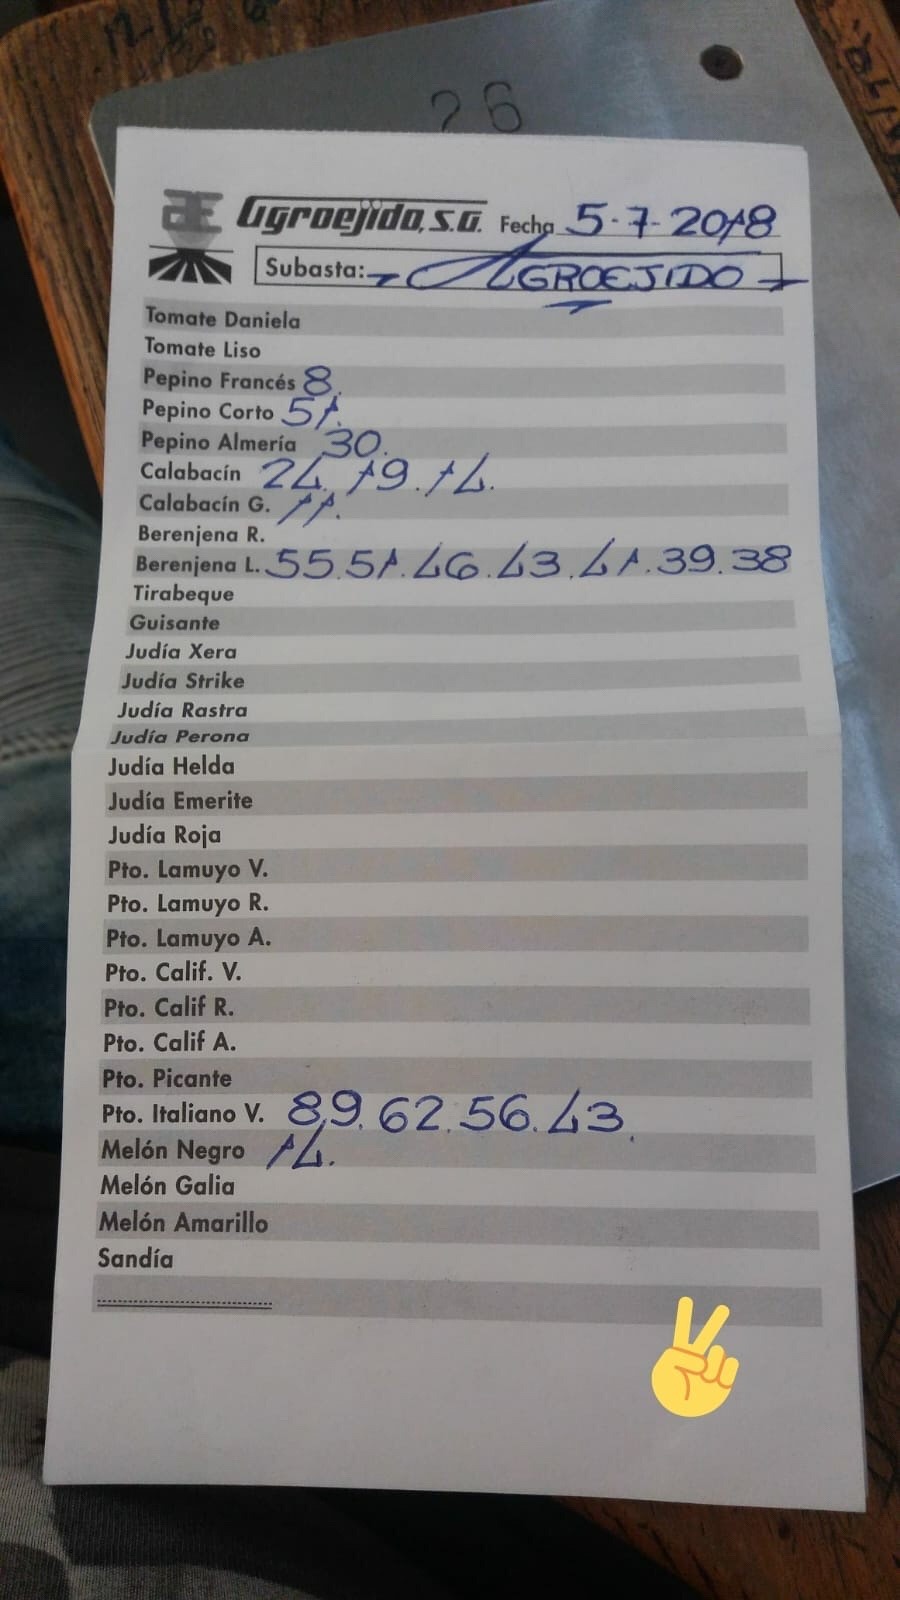 26
Agroejido, S.A. Fecha 5-7-2018
Subasta: AGROEJIDO
Tomate Daniela
Tomate Liso
Pepino Francés 8.
Pepino Corto 51.
Pepino Almería 30.
Calabacín 24. 19. 14.
Calabacín G. 11.
Berenjena R.
Berenjena L. 55. 51. 46. 43. 41. 39. 38
Tirabeque
Guisante
Judía Xera
Judía Strike
Judía Rastra
Judía Perona
Judía Helda
Judía Emerite
Judía Roja
Pto. Lamuyo V.
Pto. Lamuyo R.
Pto. Lamuyo A.
Pto. Calif. V.
Pto. Calif R.
Pto. Calif A.
Pto. Picante
Pto. Italiano V. 89. 62. 56. 43.
Melón Negro 14.
Melón Galia
Melón Amarillo
Sandía